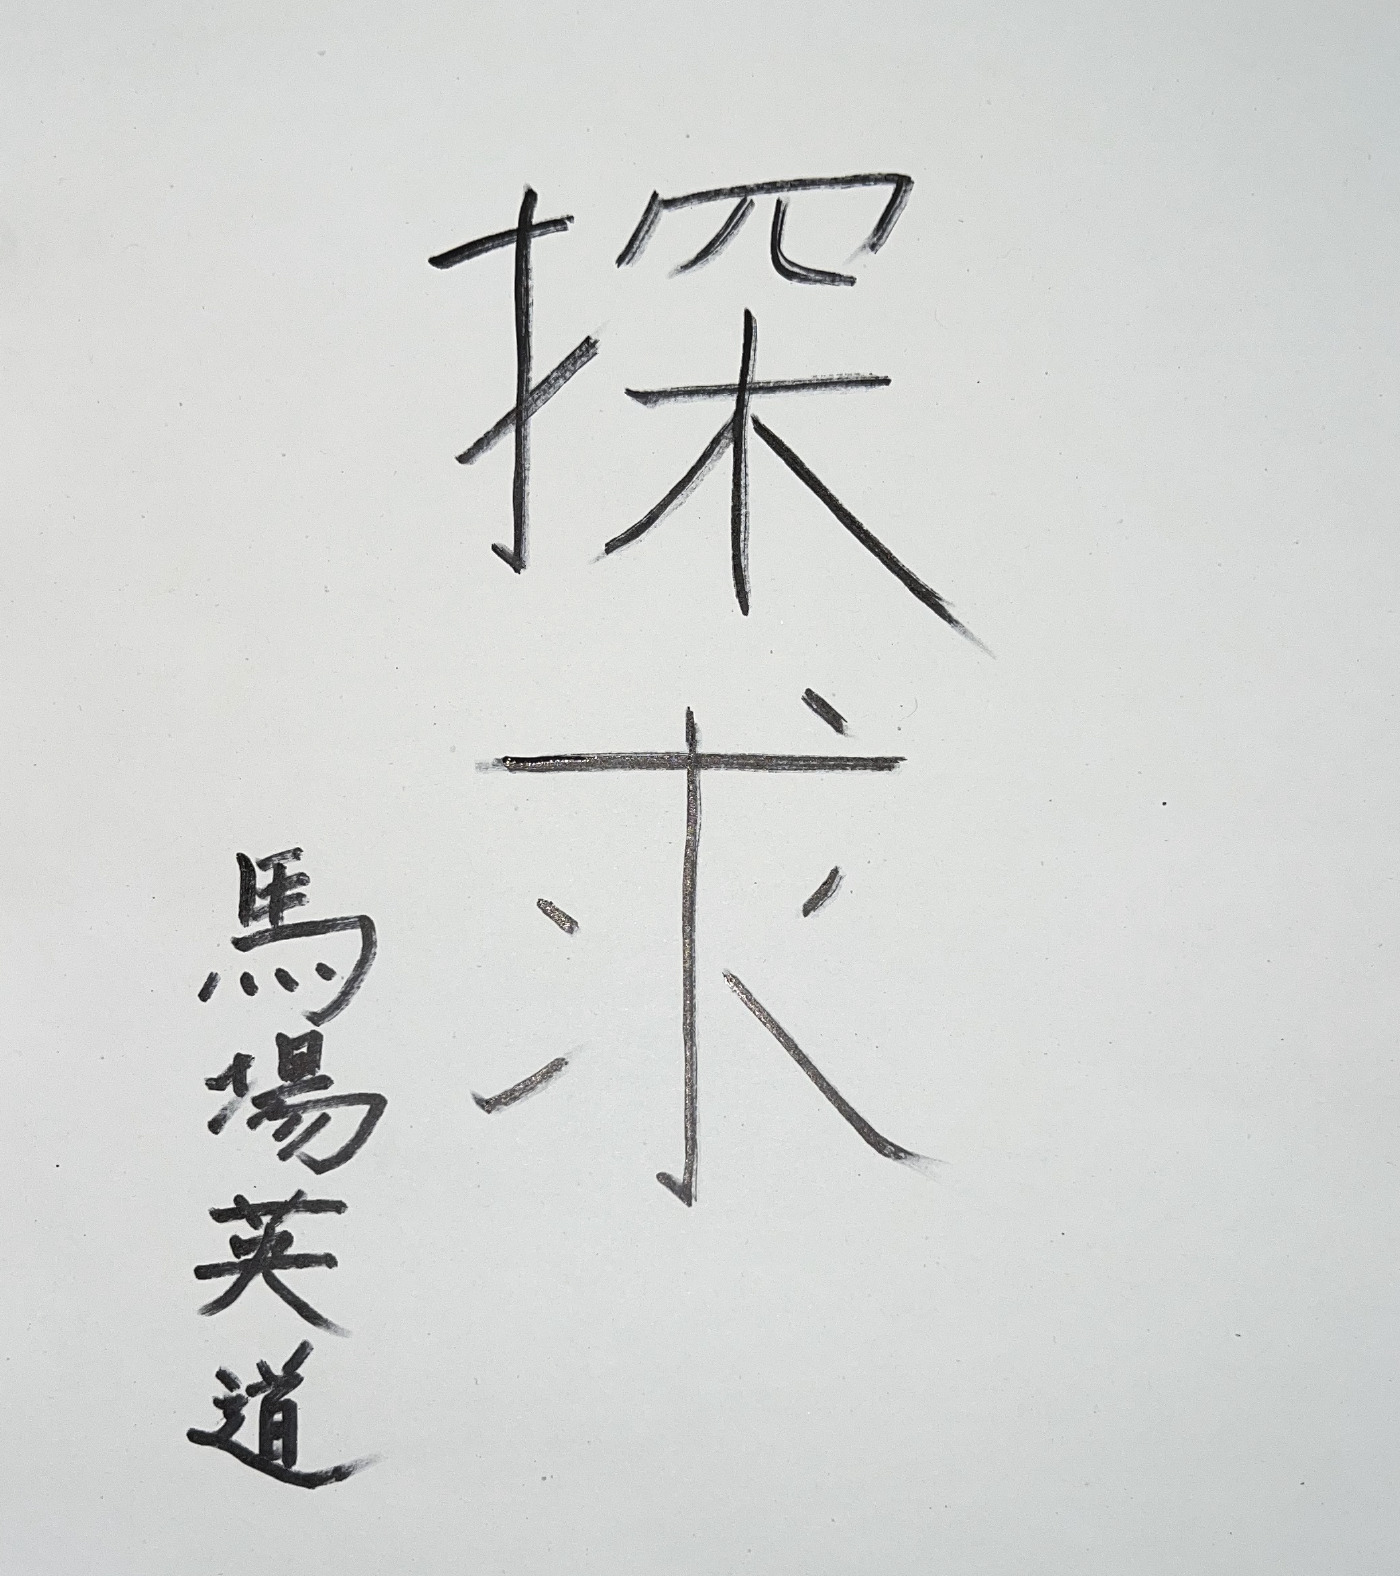 探求
馬場英道